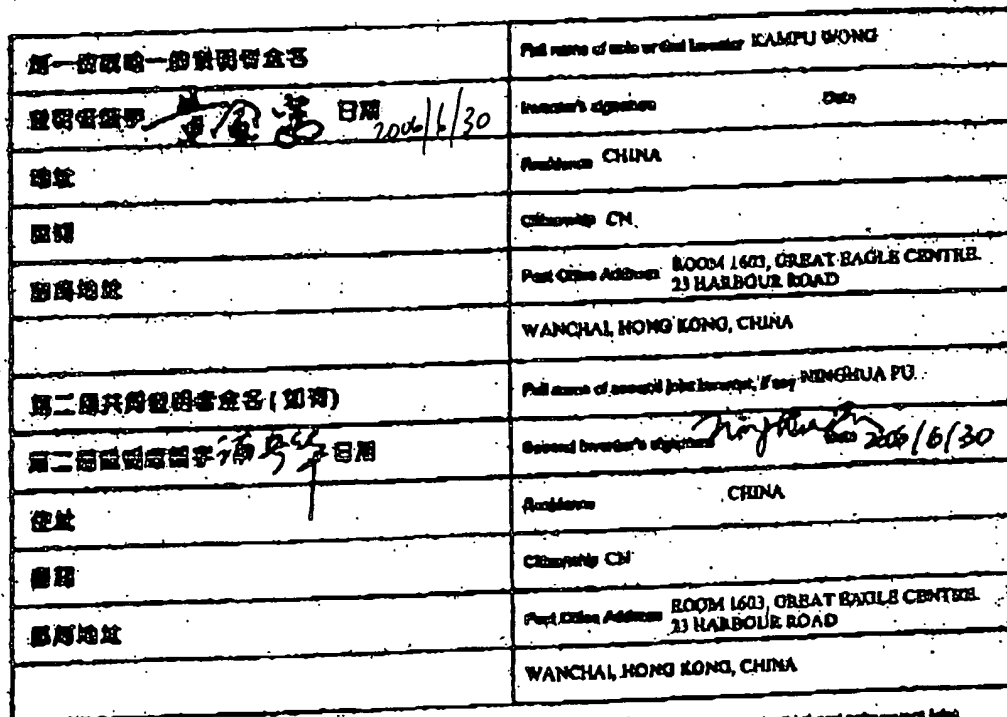 第一或唯一的發明者全名
Full name of sole or first Inventor KAMPU WONG
發明者簽字 日期 2006/6/30
Inventor's signature Date
Residence CHINA
國籍
Citizenship CN
郵局地址
Post Office Address ROOM 1603, GREAT EAGLE CENTRE
23 HARBOUR ROAD
WANCHAI, HONG KONG, CHINA
第二個共同發明者全名(如有)
Full name of second joint Inventor, if any NINGHUA PU
第二個發明者簽字 日期
Second Inventor's signature Date 2006/6/30
住址
Residence CHINA
Citizenship CN
郵局地址
Post Office Address ROOM 1603, GREAT EAGLE CENTRE
23 HARBOUR ROAD
WANCHAI, HONG KONG, CHINA